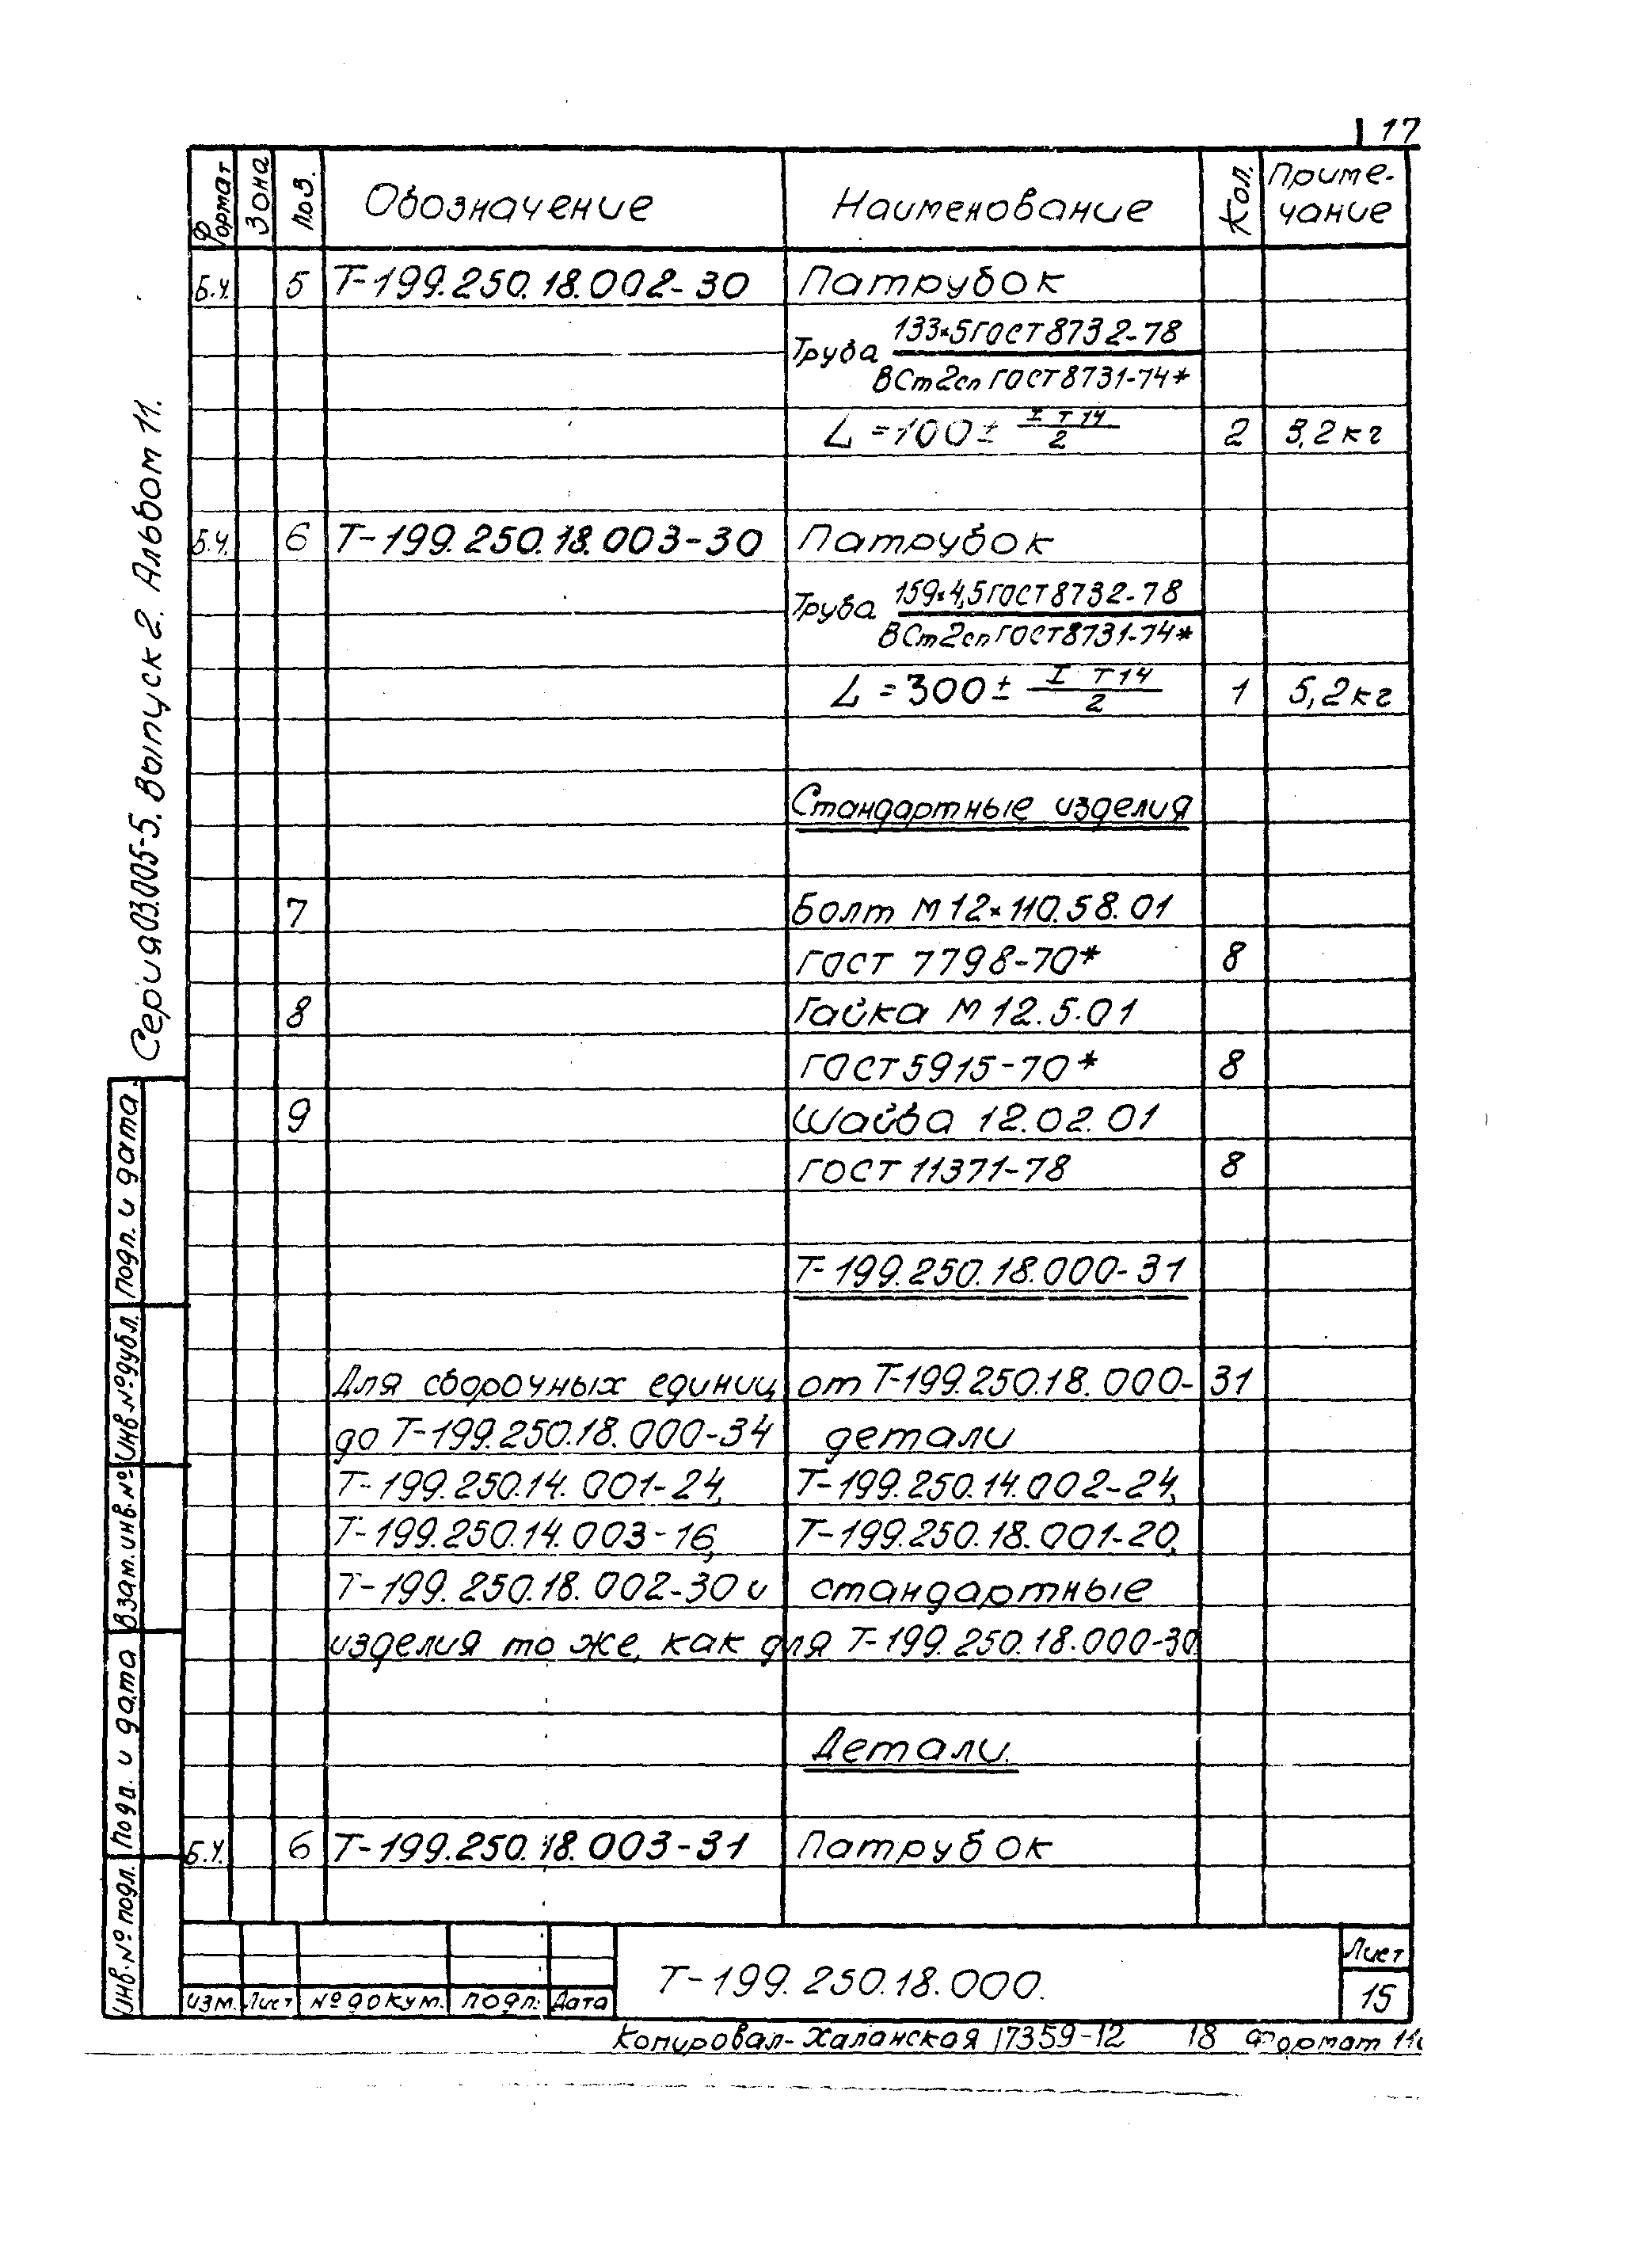 17
Формат Зона Поз. Обозначение Наименование Кол. Приме-
чание
Б.Ч. 5 Т-199.250.18.002-30 Патрубок
Труба 133×5 ГОСТ 8732-78
ВСт2сп ГОСТ 8731-74*
L = 100 ± IT14/2 2 3,2 кг
Б.Ч. 6 Т-199.250.18.003-30 Патрубок
Труба 159×4,5 ГОСТ 8732-78
ВСт2сп ГОСТ 8731-74*
L = 300 ± IT14/2 1 5,2 кг
Стандартные изделия
7 Болт М12×110.58.01
ГОСТ 7798-70* 8
8 Гайка М12.5.01
ГОСТ 5915-70* 8
9 Шайба 12.02.01
ГОСТ 11371-78 8
Т-199.250.18.000-31
Для сборочных единиц от Т-199.250.18.000-31
до Т-199.250.18.000-34 детали
Т-199.250.14.001-24, Т-199.250.14.002-24,
Т-199.250.14.003-16, Т-199.250.18.001-20,
Т-199.250.18.002-30 и стандартные
изделия то же, как для Т-199.250.18.000-30.
Детали.
Б.Ч. 6 Т-199.250.18.003-31 Патрубок
Изм. Лист № докум. Подп. Дата
Т-199.250.18.000.
Лист
15
Копировал- Халанская 17359-12 18 Формат 11
Серия 03.005-5. Выпуск 2. Альбом 11.
Подп. и дата
Инв. № дубл.
Взам. инв. №
Подп. и дата
Инв. № подл.